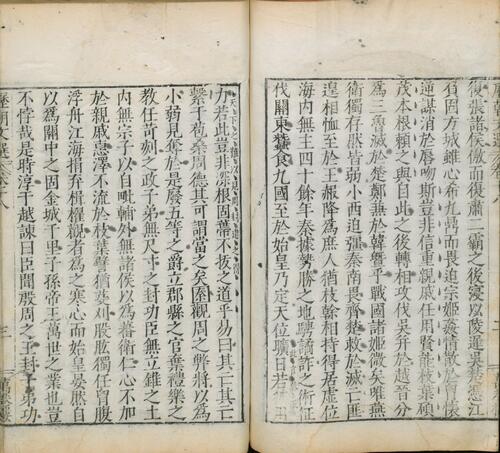 復張諸侯傲而復肅二霸之後寖以陵遲吳楚憑江
負固方城雖心希九鼎而畏迫宗姬姦情散於胷懷
逆謀消於唇吻斯豈非信重親戚任用賢能枝葉碩
茂本根賴之與自此之後轉相攻伐吳并於越晉分
為三魯滅於楚鄭兼於韓暨乎戰國諸姬微矣唯燕
衛獨存然皆弱小西迫強秦南畏齊楚救於滅亡匪
遑相恤至於王赧降為庶人猶枝幹相持得居虛位
海內無主四十餘年秦據勢勝之地騁譎詐之術征
伐關東蠶食九國至於始皇乃定天位曠日若
力若此豈非深根固蔕不拔之道乎易曰其亡其亡
繫于苞桑周德其可謂當之矣秦觀周之弊將以為
小弱見奪於是廢五等之爵立郡縣之官棄禮樂之
教任苛刻之政子弟無尺寸之封功臣無立錐之土
內無宗子以自毗輔外無諸侯以為蕃衛仁心不加
於親戚惠澤不流於枝葉譬猶芟刈股肱獨任胷腹
浮舟江海捐棄楫櫂觀者為之寒心而始皇晏然自
以為關中之固金城千里子孫帝王萬世之業也豈
不悖哉是時淳于越諫曰臣聞殷周之王封子弟功
歷朝文選 卷八 三